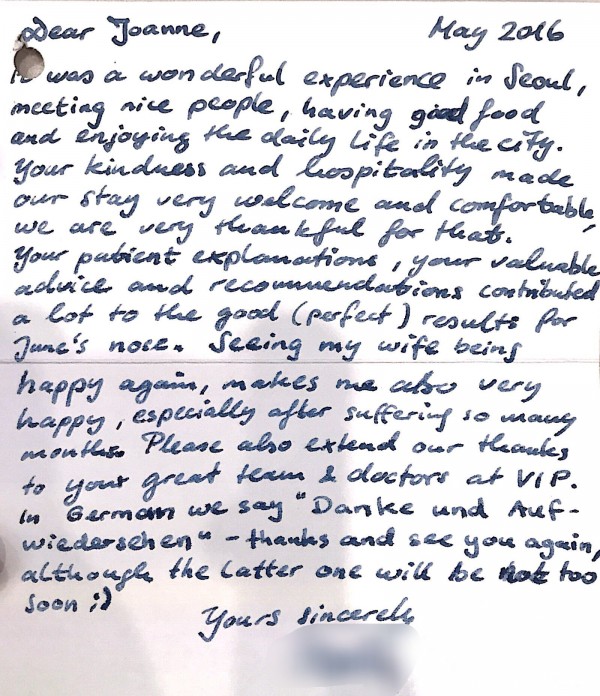 Dear Joanne, May 2016
it was a wonderful experience in Seoul,
meeting nice people, having good food
and enjoying the daily life in the city.
Your kindness and hospitality made
our stay very welcome and comfortable,
we are very thankful for that.
Your patient explanations, your valuable
advice and recommendations contributed
a lot to the good (perfect) results for
June's nose. Seeing my wife being
happy again, makes me also very
happy, especially after suffering so many
months. Please also extend our thanks
to your great team & doctors at VIP.
In German we say "Danke und Auf-
wiedersehen" - thanks and see you again,
although the latter one will be not too
soon ;)
Yours sincerely